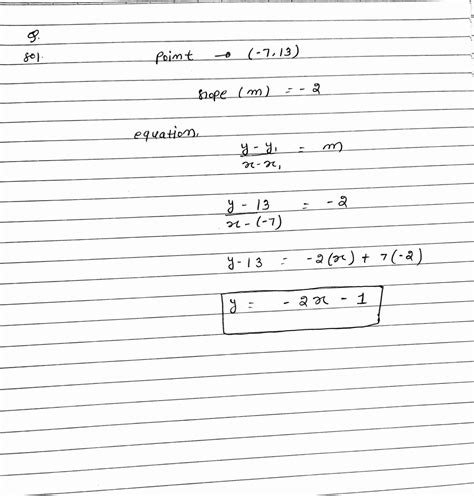 Q.
sol. point → (-7, 13)
slope (m) = -2
equation,
y - y₁ = m
x - x₁
y - 13 = -2
x - (-7)
y - 13 = -2(x) + 7(-2)
y = - 2x - 1